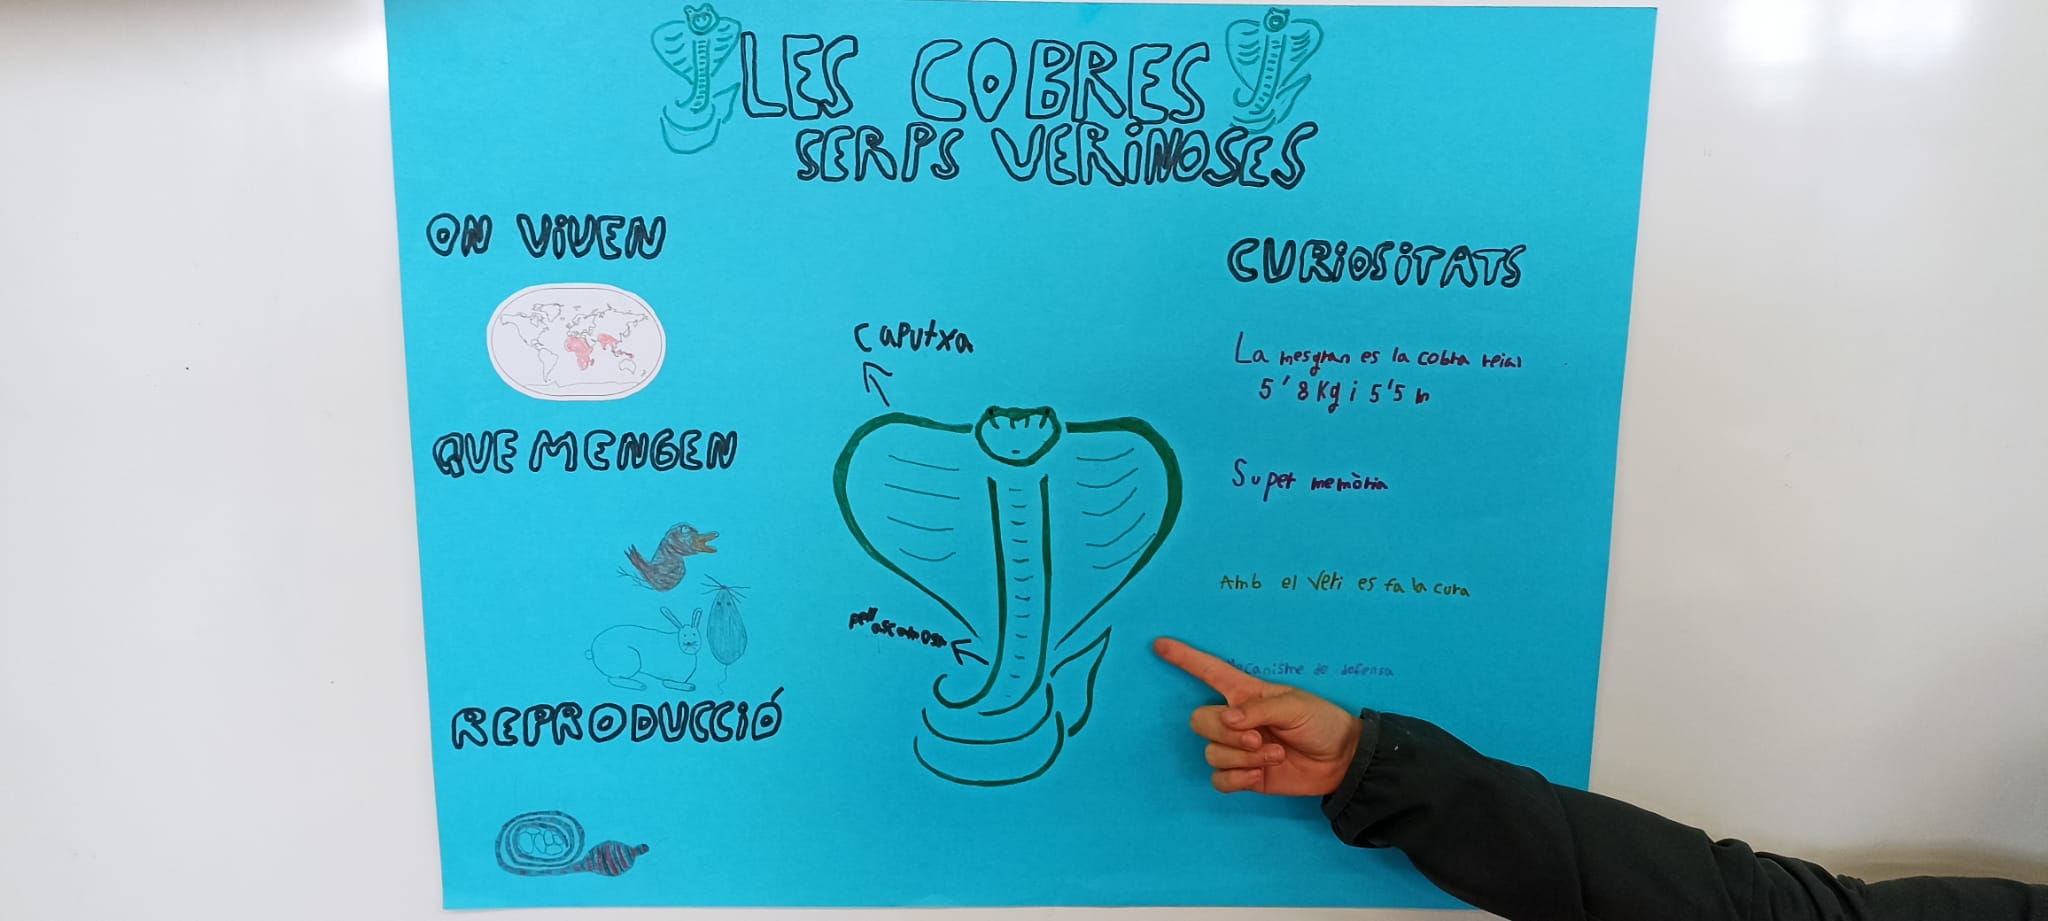 LES COBRES
SERPS VERINOSES
ON VIVEN
QUE MENGEN
REPRODUCCIÓ
CAPUTXA
pell escamosa
CURIOSITATS
La mes gran es la cobra reial
5'8 Kg i 5'5 m
Super memòria
Amb el Verí es fa la cura
Mecanisme de defensa